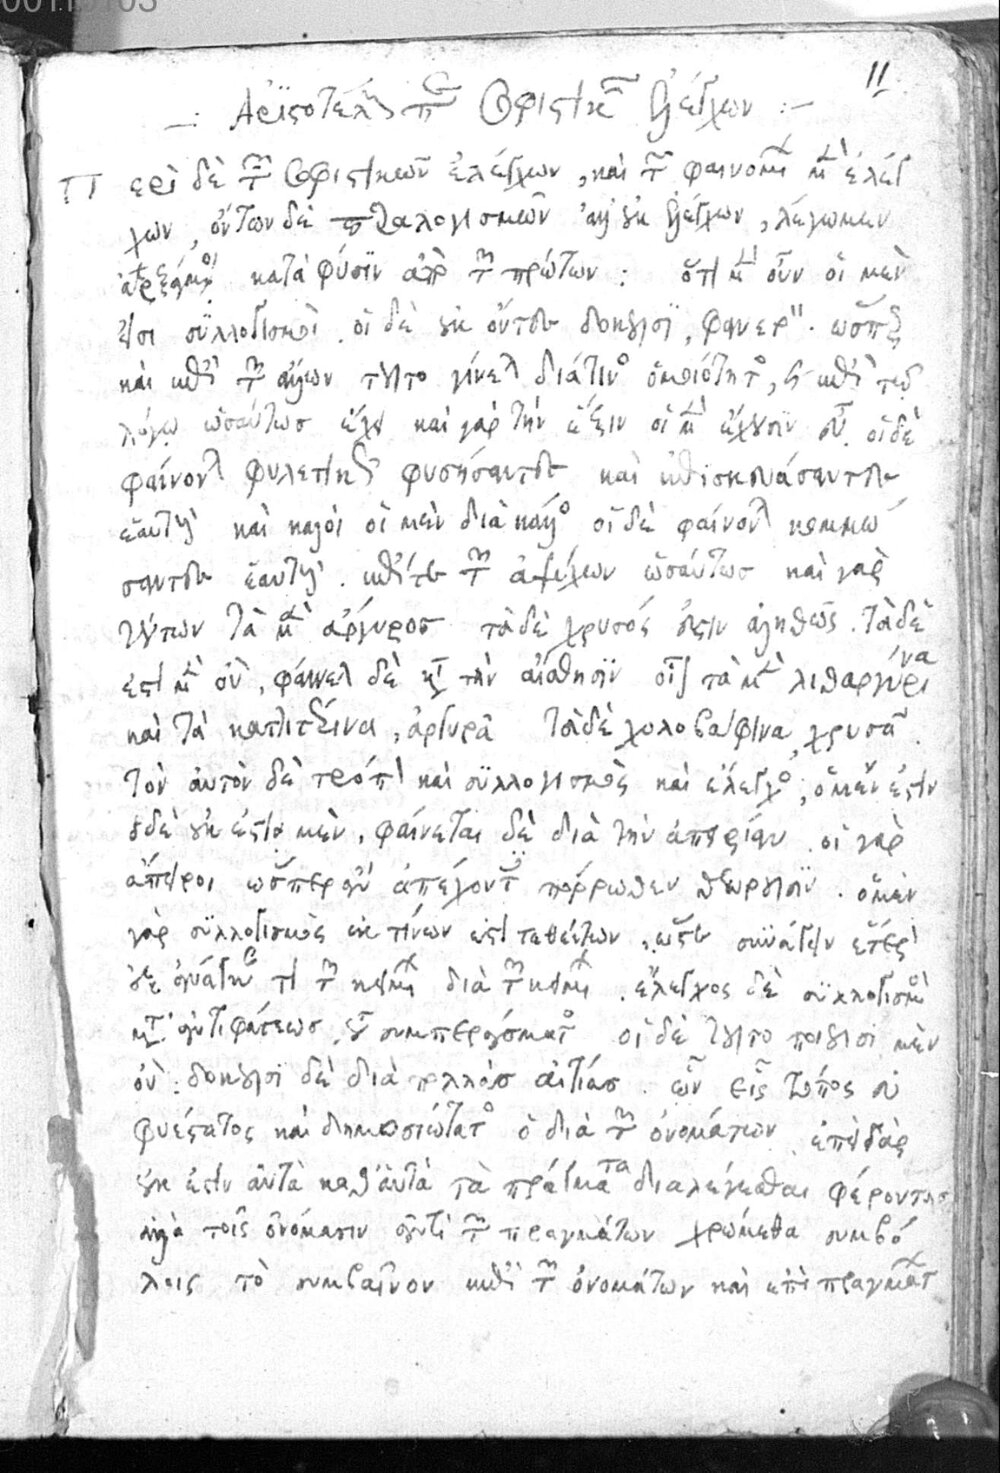 00110103
11
Ἀριστοτέλης περὶ σοφιστικῶν ἐλέγχων
Περὶ δὲ τῶν σοφιστικῶν ἐλέγχων, καὶ τῶν φαινομένων μὲν ἐλέγ
χων, ὄντων δὲ παραλογισμῶν ἀλλ' οὐκ ἐλέγχων, λέγωμεν
ἀρξάμενοι κατὰ φύσιν ἀπὸ τῶν πρώτων: ὅτι μὲν οὖν οἱ μὲν
εἰσι συλλογισμοὶ, οἱ δὲ οὐκ ὄντες δοκοῦσι, φανερόν. ὥσπερ
καὶ ἐπὶ τῶν ἄλλων τοῦτο γίνεται διά τινος ὁμοιότητος, καὶ ἐπὶ τοῦ
λόγου ὡσαύτως ἔχει καὶ γὰρ τὴν ἕξιν οἱ μὲν ἔχουσιν εὖ. οἱ δὲ
φαίνονται φυλετικῶς φυσήσαντες καὶ ἐπισκευάσαντες
ἑαυτούς καὶ καλοὶ οἱ μὲν διὰ κάλλος οἱ δὲ φαίνονται κομμώ
σαντες ἑαυτούς. ἐπί τε τῶν ἀψύχων ὡσαύτως καὶ γὰρ
τούτων τὰ μὲν ἄργυρος τὰ δὲ χρυσός ἐστιν ἀληθῶς. τὰ δὲ
ἐστὶ μὲν οὔ, φαίνεται δὲ κατὰ τὴν αἴσθησιν οἷον τὰ μὲν λιθαργύρινα
καὶ τὰ καττιτέρινα, ἀργυρᾶ τὰ δὲ χολοβάφινα, χρυσᾶ.
τὸν αὐτὸν δὲ τρόπον καὶ συλλογισμὸς καὶ ἔλεγχος, ὁ μὲν ἐστιν
ὁ δὲ οὐκ ἔστι μὲν, φαίνεται δὲ διὰ τὴν ἀπειρίαν. οἱ γὰρ
ἄπειροι ὥσπερ ἂν ἀπέχοντες πόρρωθεν θεωροῦσιν. ὁ μὲν
γὰρ συλλογισμὸς ἐκ τίνων ἐστὶ τεθέντων, ὥστε
διὰ τῶν κειμένων. ἔλεγχος δὲ συλλογισμὸς
μετ' ἀντιφάσεως τοῦ συμπεράσματος οἱ δὲ τοῦτο ποιοῦσι μὲν
οὔ. δοκοῦσι δὲ διὰ πολλὰς αἰτίας. ὧν εἷς τόπος εὐ
φυέστατος καὶ δημοσιώτατος ὁ διὰ τῶν ὀνομάτων ἐπεὶ γὰρ
οὐκ ἔστιν αὐτὰ καθ' αὑτὰ τὰ πράγματα διαλέγεσθαι φέροντας
ἀλλὰ τοῖς ὀνόμασιν ἀντὶ τῶν πραγμάτων χρώμεθα συμβό
λοις τὸ συμβαῖνον ἐπὶ τῶν ὀνομάτων καὶ ἐπὶ πραγμάτων